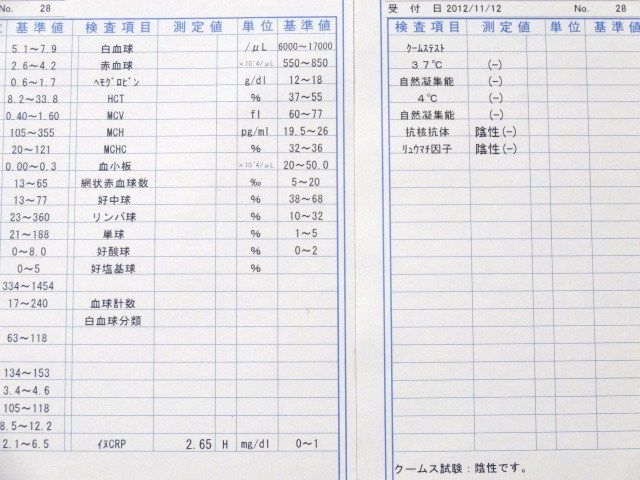 No. 28
基準値 検査項目 測定値 単位 基準値
5.1～7.9 白血球 /μL 6000～17000
2.6～4.2 赤血球 ×10^4/μL 550～850
0.6～1.7 ﾍﾓｸﾞﾛﾋﾞﾝ g/dl 12～18
8.2～33.8 HCT % 37～55
0.40～1.60 MCV fl 60～77
105～355 MCH pg/ml 19.5～26
20～121 MCHC % 32～36
0.00～0.3 血小板 ×10^4/μL 20～50.0
13～65 網状赤血球数 ‰ 5～20
13～77 好中球 % 38～68
23～360 リンパ球 % 10～32
21～188 単球 % 1～5
0～8.0 好酸球 % 0～2
0～5 好塩基球 %
334～1454
17～240 血球計数
白血球分類
63～118
134～153
3.4～4.6
105～118
8.5～12.2
2.1～6.5 ｲﾇCRP 2.65 H mg/dl 0～1
受付日 2012/11/12 No. 28
検査項目 測定値 単位 基準値
ｸｰﾑｽﾃｽﾄ
３７℃ (-)
自然凝集能 (-)
４℃ (-)
自然凝集能 (-)
抗核抗体 陰性(-)
ﾘｭｳﾏﾁ因子 陰性(-)
クームス試験：陰性です。